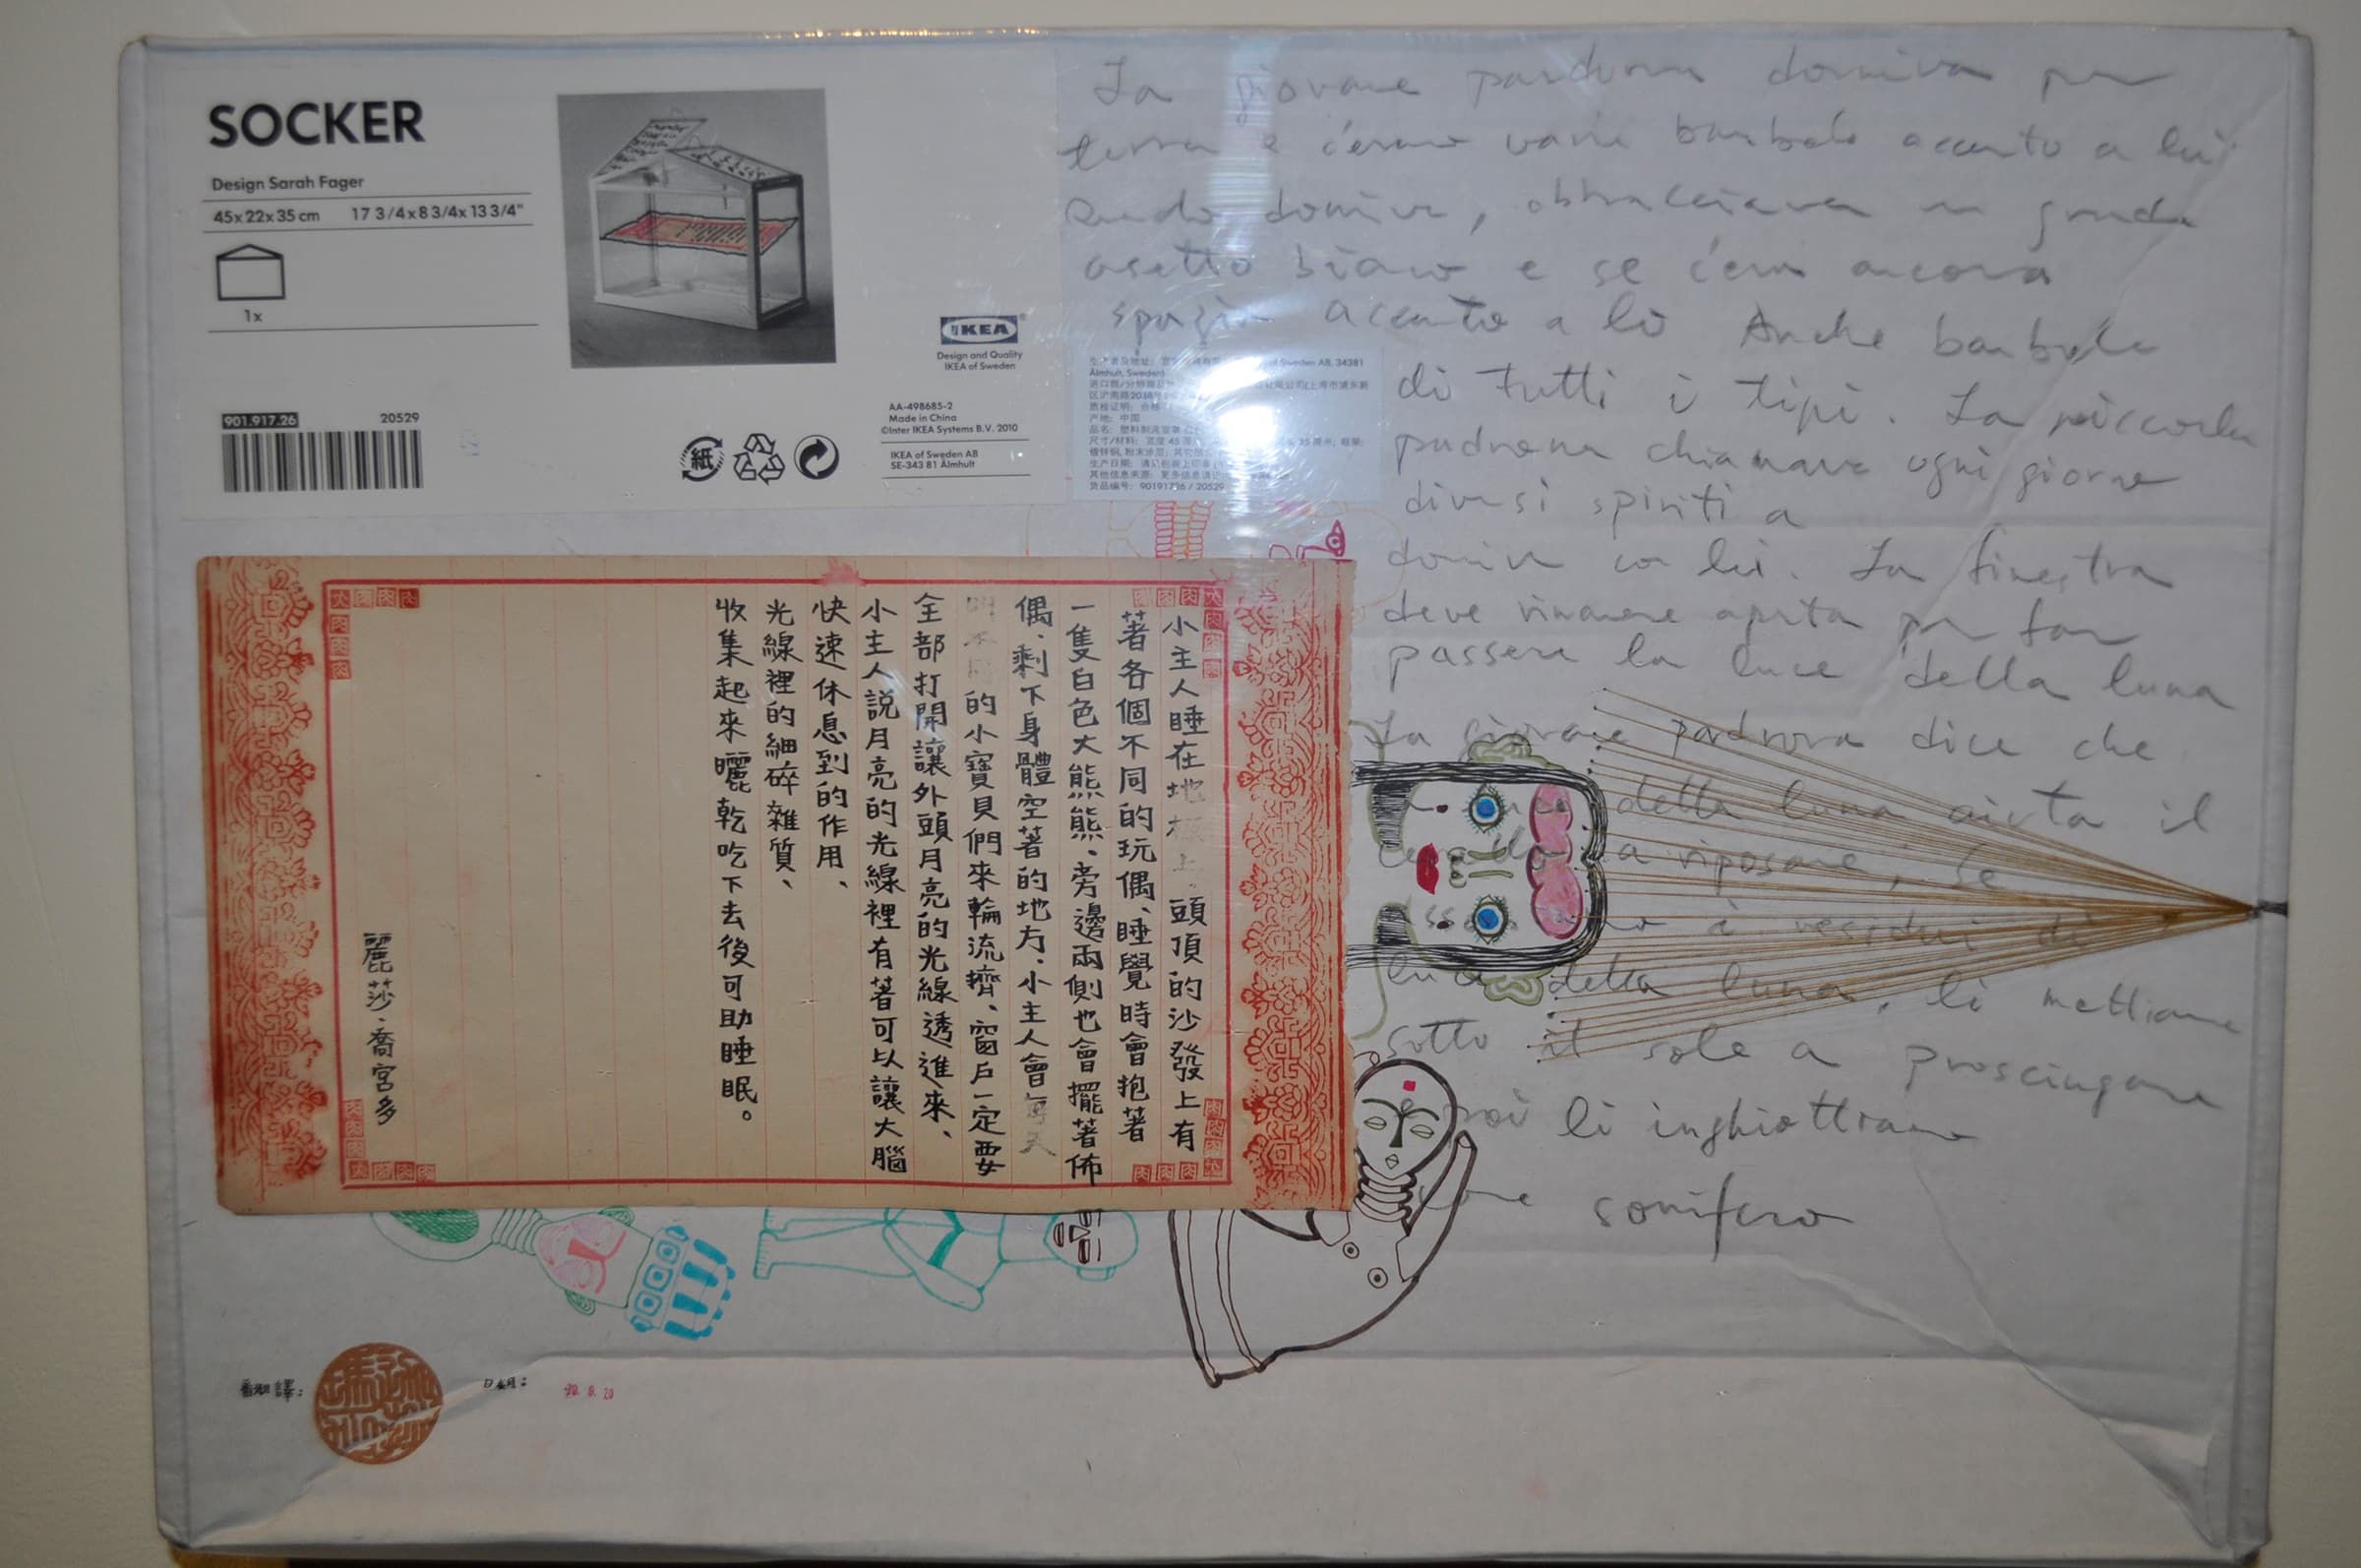 SOCKER
Design Sarah Fager
45x22x35 cm 17 3/4x8 3/4x 13 3/4"
1x
IKEA
Design and Quality
IKEA of Sweden
901.917.26 20529
紙
AA-498685-2
Made in China
©Inter IKEA Systems B.V. 2010
IKEA of Sweden AB
SE-343 81 Älmhult
Sweden AB, 34381
Älmhult, Sweden
产地: 中国
货品编号: 90191726 / 20529
La giovane padrona dormiva per
terra e c'erano varie bambole accanto a lei
Quando dormiva, abbracciava un grande
orsetto bianco e se c'era ancora
spazio accanto a lei Anche bambole
di tutti i tipi. La piccola
padrona chiamava ogni giorno
diversi spiriti a
dormire con lei. La finestra
deve rimanere aperta per far
passare la luce della luna
La giovane padrona dice che
della luna aiuta il
a riposare, Se
i residui di
luce della luna, li mettiamo
sotto il sole a prosciugare
poi li inghiottiamo
come sonnifero
小主人睡在地板上、頭頂的沙發上有
著各個不同的玩偶、睡覺時會抱著
一隻白色大熊熊、旁邊兩側也會擺著佈
偶、剩下身體空著的地方、小主人會每天
叫不同的小寶貝們來輪流擠、窗戶一定要
全部打開讓外頭月亮的光線透進來、
小主人説月亮的光線裡有著可以讓大腦
快速休息到的作用、
光線裡的細碎雜質、
收集起來曬乾吃下去後可助睡眠。
麗莎·喬宮多
翻譯:
日期: